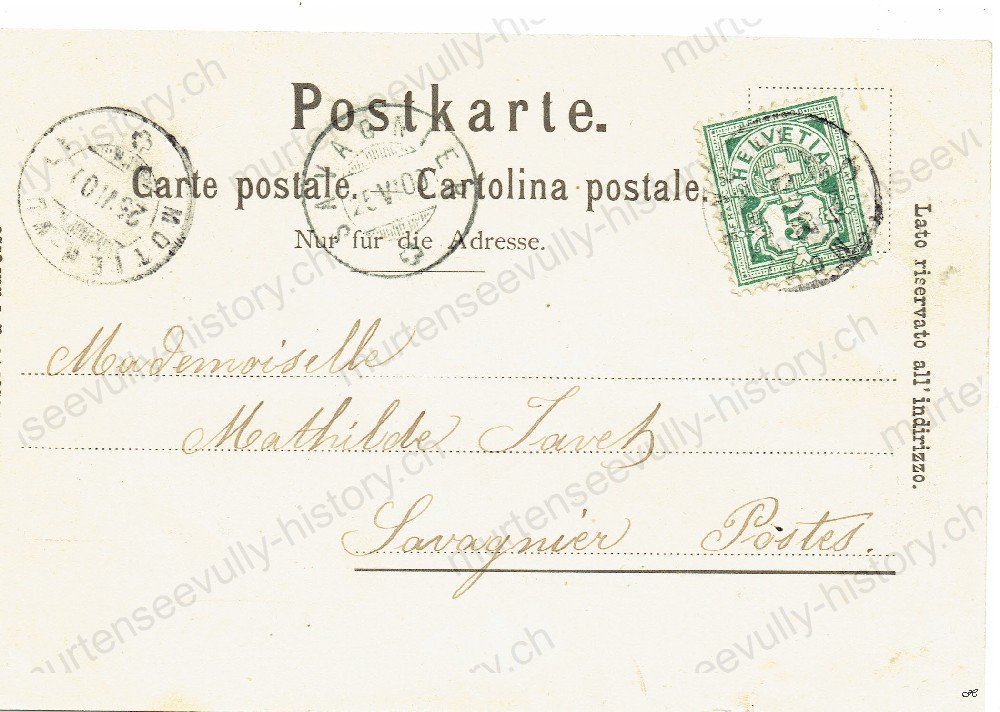 Postkarte.
Carte postale. Cartolina postale.
Nur für die Adresse.
HELVETIA
5
25 VI 02
MOTIER
Lato riservato all' indirizzo.
Mademoiselle
Mathilde Javet
Savagnier Postes.
murtenseevully-history.ch